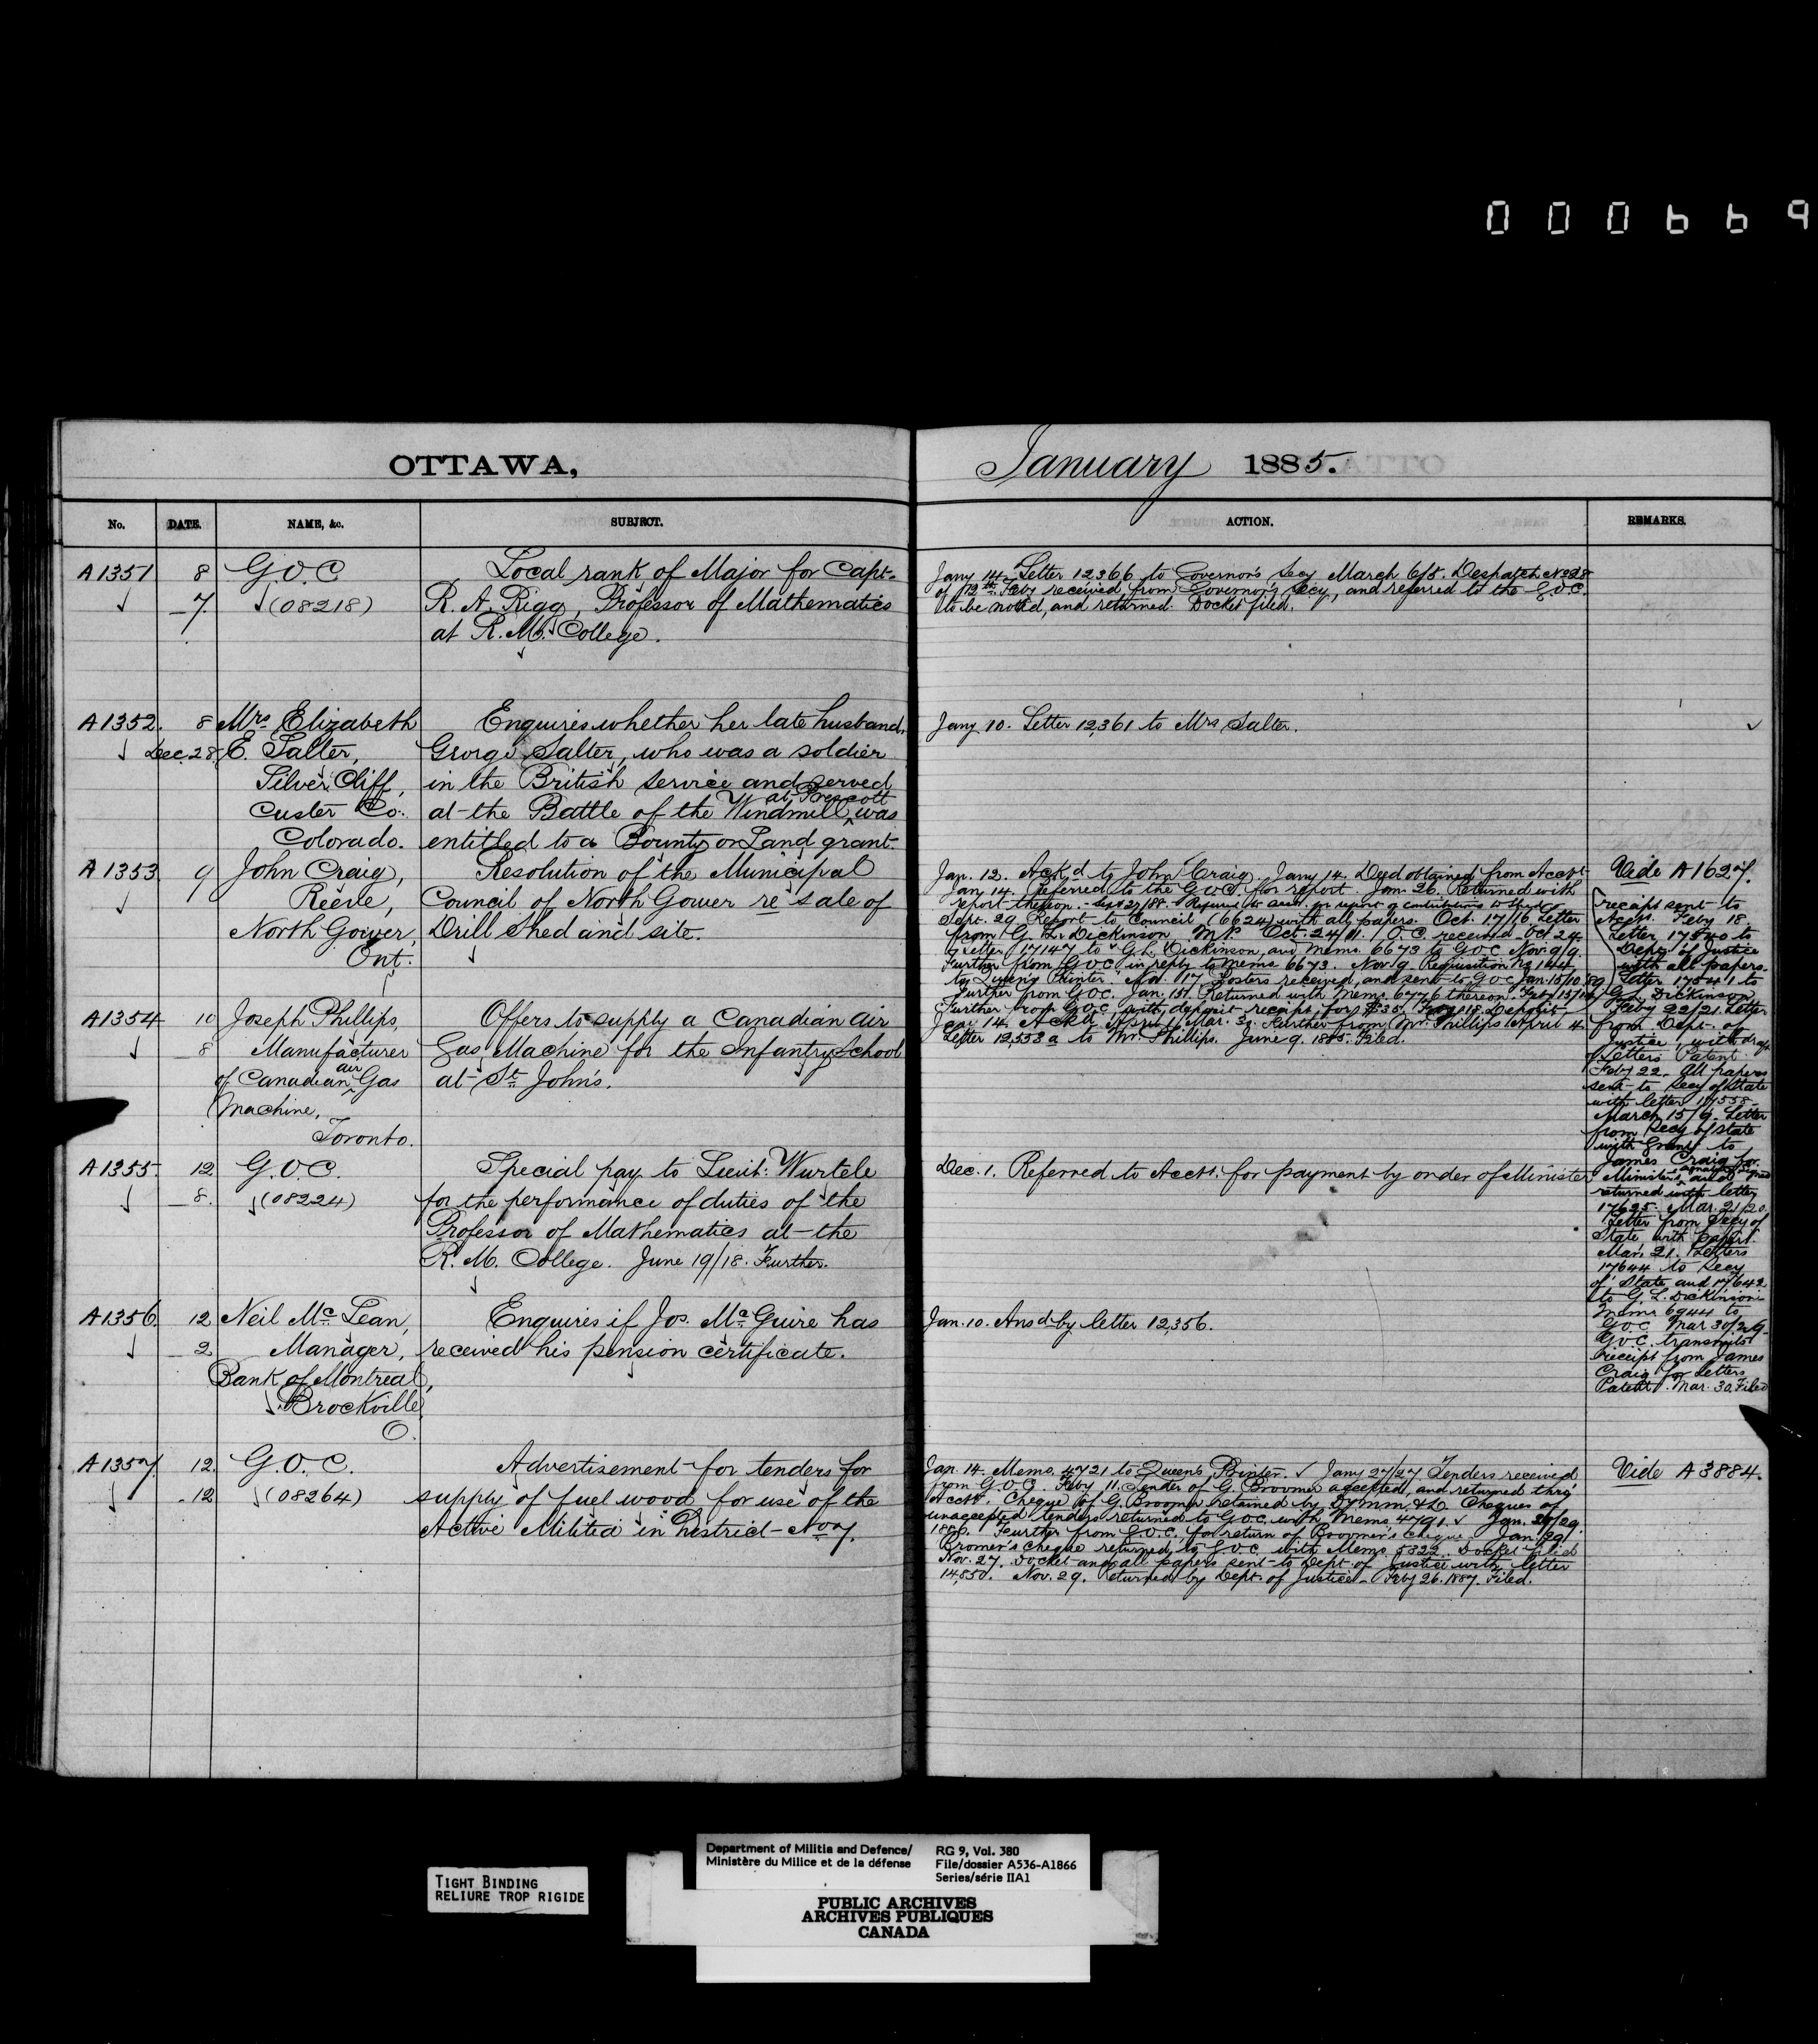 000669
OTTAWA,
No. DATE. NAME, &c. SUBJECT.
A1351 8 G.O.C Local rank of Major for Capt.
7 (08218) R. A. Rigg, Professor of Mathematics
at R. M. College.
A1352. 8 Mrs Elizabeth Enquires whether her late husband,
Dec. 28 E. Salter, George Salter, who was a soldier
Silver Cliff, in the British service and served
Custer Co. at the Battle of the Windmill at Prescott was
Colorado. entitled to a Bounty or Land grant.
A1353 9 John Craig, Resolution of the Municipal
Reeve, Council of North Gower re sale of
North Gower, Drill Shed and site.
Ont.
A1354 10 Joseph Phillips, Offers to supply a Canadian Air
8 Manufacturer Gas Machine for the Infantry School
of Canadian air Gas at St. John's.
Machine,
Toronto.
A1355. 12 G.O.C. Special pay to Lieut: Wurtele
8. (08224) for the performance of duties of the
Professor of Mathematics at the
R. M. College. June 19/18. Further.
A1356. 12 Neil Mc Lean, Enquires if Jos. Mc Guire has
2 Manager, received his pension certificate.
Bank of Montreal,
Brockville,
O.
A1357. 12. G.O.C. Advertisement for tenders for
12 (08264) supply of fuel wood for use of the
Active Militia in District No 7.
January 1885.
ACTION. REMARKS.
Jany 14. Letter 12,366 to Governor's Secy March 6/5. Despatch No 28
of 12th Feby received from Governor's Secy, and referred to the G.O.C.
to be noted, and returned. Docket filed.
Jany 10. Letter 12,361 to Mrs Salter.
Jan. 12. Ack'd to John Craig. Jany 14. Deed obtained from Acct
Jan 14. Referred to the G.O.C. for report. Jan. 26. Returned with
report thereon. for report of contributions to shed
Sept. 29 Report to Council (6624) with all papers. Oct. 17/16 Letter
from G. L. Dickinson M.P. Oct. 24/11. O.C. received Oct 24
Letter 17147 to G. L. Dickinson, and Memo. 6673 to GOC Nov. 9/9.
Further from GOC in reply to Memo 6673. Nov. 9 Requisition No 144
to Queen's Printer. Nov. 17 Posters received, and sent to GOC Jan. 15/10
Further from GOC. Jan. 15. Returned with Memo 6776 thereon. Feby 15/
Further from GOC, with deposit receipt for $35. Feby 18. Deposit
Jan. 14. Ackd. Mar. 3. Further from Mr. Phillips April 4.
Letter 12,558 a to Mr. Phillips. June 9. 1885. Filed.
Dec. 1. Referred to Acct. for payment by order of Minister
Jan. 10. Ansd by letter 12,356.
Jan. 14. Memo. 4721 to Queen's Printer. Jany 27/27 Tenders received
from G.O.C. Feby 11. Tender of G. Broomer accepted, and returned thro'
Acct. Cheque of G. Broomer retained by Cheques of
unaccepted tenders returned to G.O.C. with Memo 4791. Jan. 29/29.
1886. Further from G.O.C. for return of Broomer's cheque. Jan. 29
Bromer's cheque returned to G.O.C. with Memo 5322. Docket filed
Nov. 27. Docket and all papers sent to Dept. of Justice with letter
14,850. Nov. 29. Returned by Dept. of Justice. Feby 26. 1887. Filed.
Vide A 1627.
receipt sent to
Acct. Feby 18.
Letter 17540 to
Dept. of Justice
with all papers.
Letter 17541 to
G. L. Dickinson
Feby 22/21. Letter
from Dept. of
Justice, with draft
of Letters Patent
Feby 22. All papers
sent to Secy of State
with letter 17558
March 15/9. Letter
from Secy of State
with Grant to
James Craig for
Minister's signature and
returned with letter
17625. Mar. 21/20.
Letter from Secy of
State, with Patent.
Mar. 21. Letters
17644 to Secy
of State and 17642
to G. L. Dickinson
Memo 6944 to
GOC Mar 30/29
G.O.C. transmits
receipt from James
Craig for Letters
Patent. Mar. 30. Filed
Vide A 3884.
TIGHT BINDING
RELIURE TROP RIGIDE
Department of Militia and Defence/
Ministère du Milice et de la défense
RG 9, Vol. 380
File/dossier A536-A1866
Series/série IIA1
PUBLIC ARCHIVES
ARCHIVES PUBLIQUES
CANADA